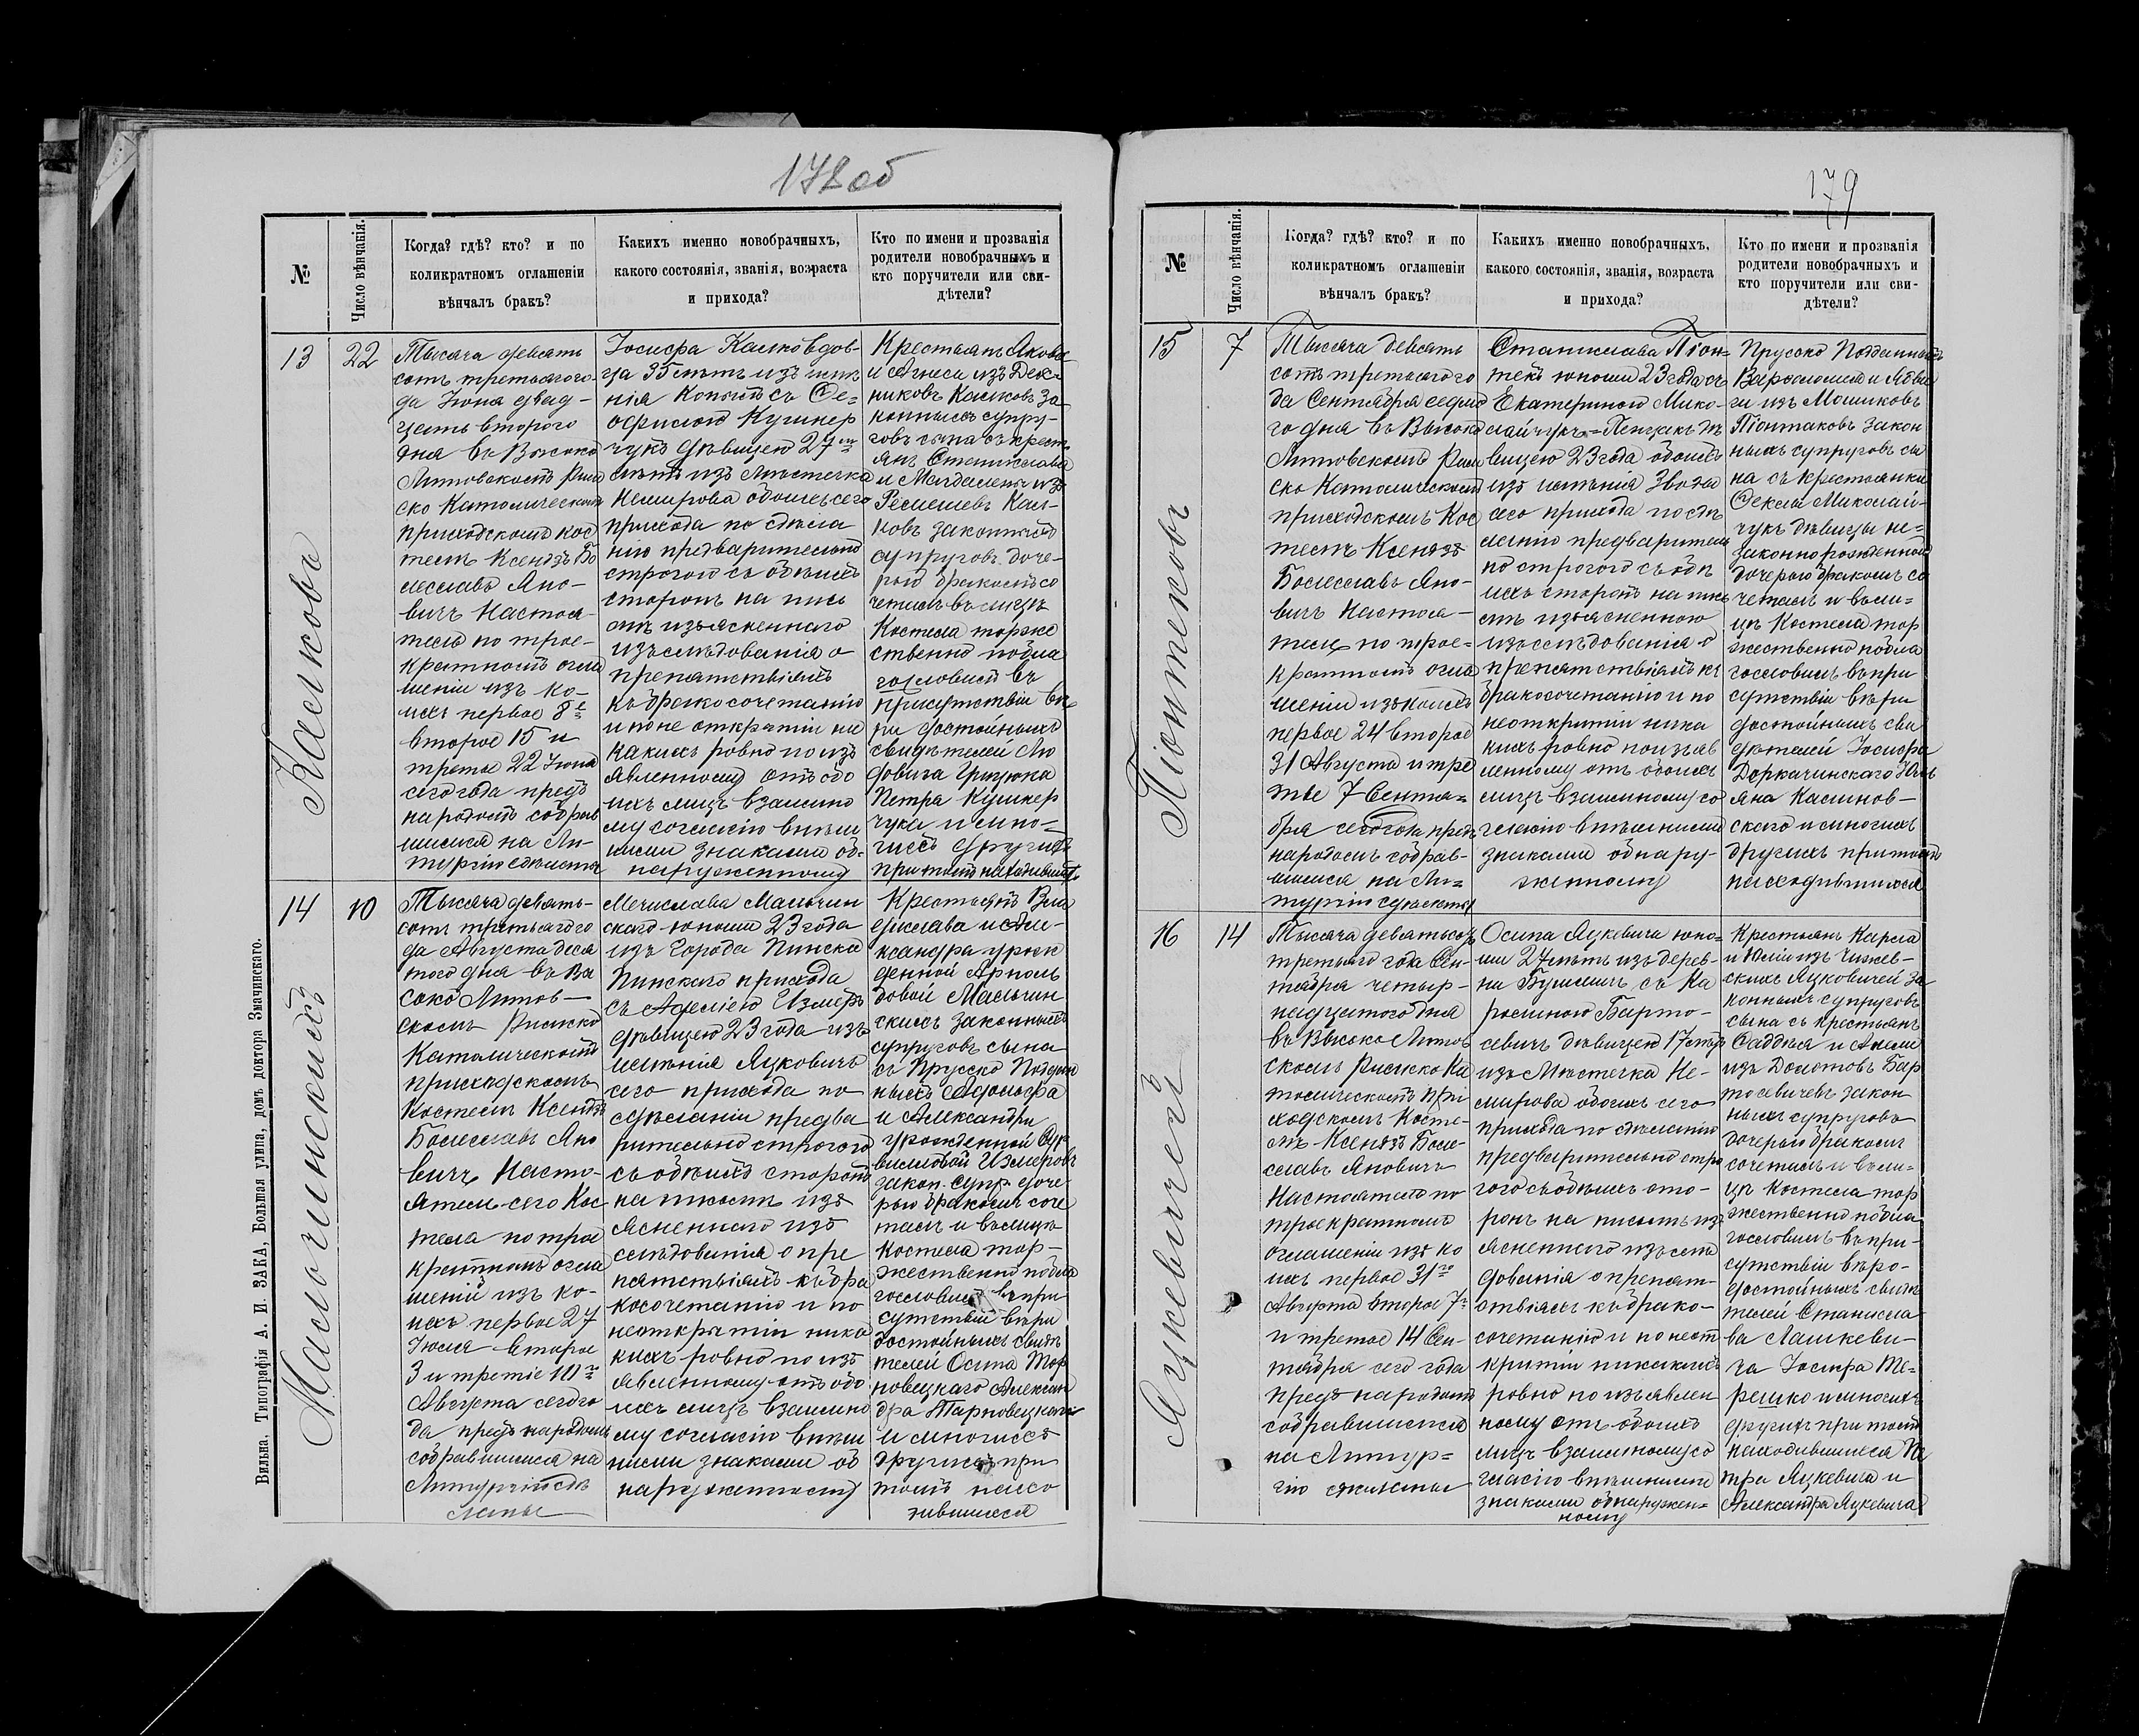 178 об
№
Число вѣнчанія.
Когда? гдѣ? кто? и по
коликратномъ оглашеніи
вѣнчалъ бракъ?
Какихъ именно новобрачныхъ,
какого состоянія, званія, возраста
и прихода?
Кто по имени и прозванія
родители новобрачныхъ и
кто поручители или сви-
дѣтели?
13
22
Калковъ
Тысяча девять
сотъ третьяго го-
да Іюня двад-
цать второго
дня въ Высоко
Литовскомъ Рим
ско Католическомъ
приходскомъ кос
телѣ Ксендзъ Бо
леславъ Яно-
вичъ Настоя-
тель по трое-
кратномъ огла
шеніи изъ ко-
ихъ первое 8е
второе 15 и
третье 22 Іюня
сего года предъ
народомъ собрав
шимся на Ли-
тургію
Іосифа Калко вдов-
ца 35 лѣтъ изъ имѣ
нія съ Ѳе-
офилою Кушнер
чукъ дѣвицею 27ми
лѣтъ изъ мѣстечка
Немирова обоихъ сего
прихода по сдѣла
ніи предварительно
строгого съ обѣихъ
сторонъ на пись
мѣ изъясненнаго
изъслѣдованія о
препятствіяхъ
къ бракосочетанію
и по не открытіи ни
какихъ ровно по изъ
явленному отъ обо
ихъ лицъ взаимно
му согласію внѣш
ними знаками об-
наруженному
Крестьянъ Якова
и Агнеси изъ
никовъ Калковъ за
конныхъ супру-
говъ сына съ крест
янъ Станислава
и Магдалены изъ
законныхъ
супруговъ доче-
рью бракомъ со
четалъ въ лицѣ
Костела торже
ственно побла
гословилъ въ
присутствіи вѣ
ри достойныхъ
свидѣтелей Лю
довика Грицюка
Петра Кушнер
чука и мно-
гихъ другихъ
при томъ находившихся
14
10
Малочинскихъ
Тысяча девять-
сотъ третьяго го
да Августа деся
того дня въ Вы
соко Литов-
скомъ Римско
Католическомъ
приходскомъ
Костелѣ Ксендзъ
Болеславъ Яно
вичъ Насто-
ятель сего Кос
тела по трое
кратномъ огла
шеніи изъ ко-
ихъ первое 27
Іюля второе
3 и третіе 10го
Августа сего го
да предъ народомъ
собравшимся на
Литургію
Мечислава Мальчин
скаго юноши 23 года
изъ Города Пинска
Пинскаго прихода
съ Аделіею
дѣвицею 23 года изъ
имѣнія Яцковичъ
сего прихода по
сдѣланіи предва
рительно строгого
съ обѣихъ сторонъ
на письмѣ изъ
ясненнаго изъ
слѣдованія о пре
пятствіяхъ къ бра
косочетанію и по
неоткрытіи ника
кихъ ровно по изъ
явленному отъ обо
ихъ лицъ взаимно
му согласію внѣш
ними знаками об
наруженному
Крестьянъ Вла
дислава и Але-
ксандра урож
денной
Мальчин
скихъ законныхъ
супруговъ сына
съ Прусско Поддан
ныхъ Адольфа
и Александри
урожденной
закон. супр. доче
рью бракомъ соче
талъ и въ лицѣ
Костела тор-
жественно побла
гословилъ въ при
сутствіи вѣри
достойныхъ свидѣ
телей Осипа Тар
новецкаго Алексан
дра Тарновецкаго
и многихъ
другихъ при
томъ нахо
дившихся
Вильна, Типографія А. И. ЗАКА, Большая улица, домъ доктора Змачинскаго.
179
№
Число вѣнчанія.
Когда? гдѣ? кто? и по
коликратномъ оглашеніи
вѣнчалъ бракъ?
Какихъ именно новобрачныхъ,
какого состоянія, званія, возраста
и прихода?
Кто по имени и прозванія
родители новобрачныхъ и
кто поручители или сви-
дѣтели?
15
7
Піонтековъ
Тысяча девять
сотъ третьяго го
да Сентября седмо
го дня въ Высоко
Литовскомъ Рим
ско Католическомъ
приходскомъ Кос
телѣ Ксендзъ
Болеславъ Яно-
вичъ Настоя-
тель по трое-
кратномъ огла
шеніи изъ коихъ
первое 24 второе
31 Августа и тре
тье 7 Сентя-
бря сего года предъ
народомъ собрав-
шимся на Ли-
тургію
Станислава Піон-
текъ юноши 23 года съ
Екатериною Мико-
лайчукъ дѣ
вицею 23 года обоихъ
изъ имѣнія Звода
сего прихода по сдѣ
ланію предваритель
но строгого съ обѣ
ихъ сторонъ на пись
мѣ изъясненного
изъслѣдованія о
препятствіяхъ къ
бракосочетанію и по
неоткрытіи ника
кихъ ровно по изъяв
ленному отъ обоихъ
лицъ взаимному со
гласію внѣшними
знаками обнару-
женному
Прусско Подданныхъ
Варѳоломея и Ядви
ги изъ Мошиковъ
Піонтаковъ закон
ныхъ супруговъ сы
на съ крестьянки
Ѳеклы Миколай-
чукъ дѣвицы не-
законнорожденной
дочерью бракомъ со
четалъ и въ ли-
цѣ Костела тор
жественно побла
гословилъ въ при
сутствіи вѣри
достойныхъ сви
дѣтелей Іосифа
Деркачинскаго Юль
яна Калинов-
скаго и многихъ
другихъ при томъ
находившихся
16
14
Яцкевичей
Тысяча девятьсотъ
третьяго года Сен-
тября четыр-
надцатого дня
въ Высоко Литов
скомъ Римско Ка
толическомъ при
ходскомъ Косте-
лѣ Ксендзъ Боле-
славъ Яновичъ
Настоятель по
троекратномъ
оглашеніи изъ ко
ихъ первое 31го
Августа второе 7е
и третье 14 Сен-
тября сего года
предъ народомъ
собравшимся
на Литур-
гію
Осипа Яцкевича юно-
ши 27 лѣтъ изъ дерев-
ни съ Ка
ролиною Барто-
севичъ дѣвицею 17 лѣтъ
изъ Мѣстечка Не-
мирова обоихъ сего
прихода по сдѣланію
предварительно стро
гого съ обѣихъ сто-
ронъ на письмѣ изъ
ясненного изъслѣ
дованія о препят-
ствіяхъ къ брако-
сочетанію и по неот
крытіи никакихъ
ровно по изъявлен
ному отъ обоихъ
лицъ взаимному со
гласію внѣшними
знаками обнаружен-
ному
Крестьянъ Карла
и Юліи изъ
скихъ Яцковичей за
конныхъ супруговъ
сына съ крестьянъ
Ѳаддѣя и Анели
изъ Домотовъ Бар
тосевичевъ закон
ныхъ супруговъ
дочерью бракомъ
сочеталъ и въ ли-
цѣ Костела тор
жественно побла
гословилъ въ при-
сутствіи вѣро-
достойныхъ свидѣ
телей Станисла-
ва Лашкеви-
ча Іосифа Те-
решко и многихъ
другихъ при томъ
находившихся Пе
тра Яцкевича и
Александра Яцкевича